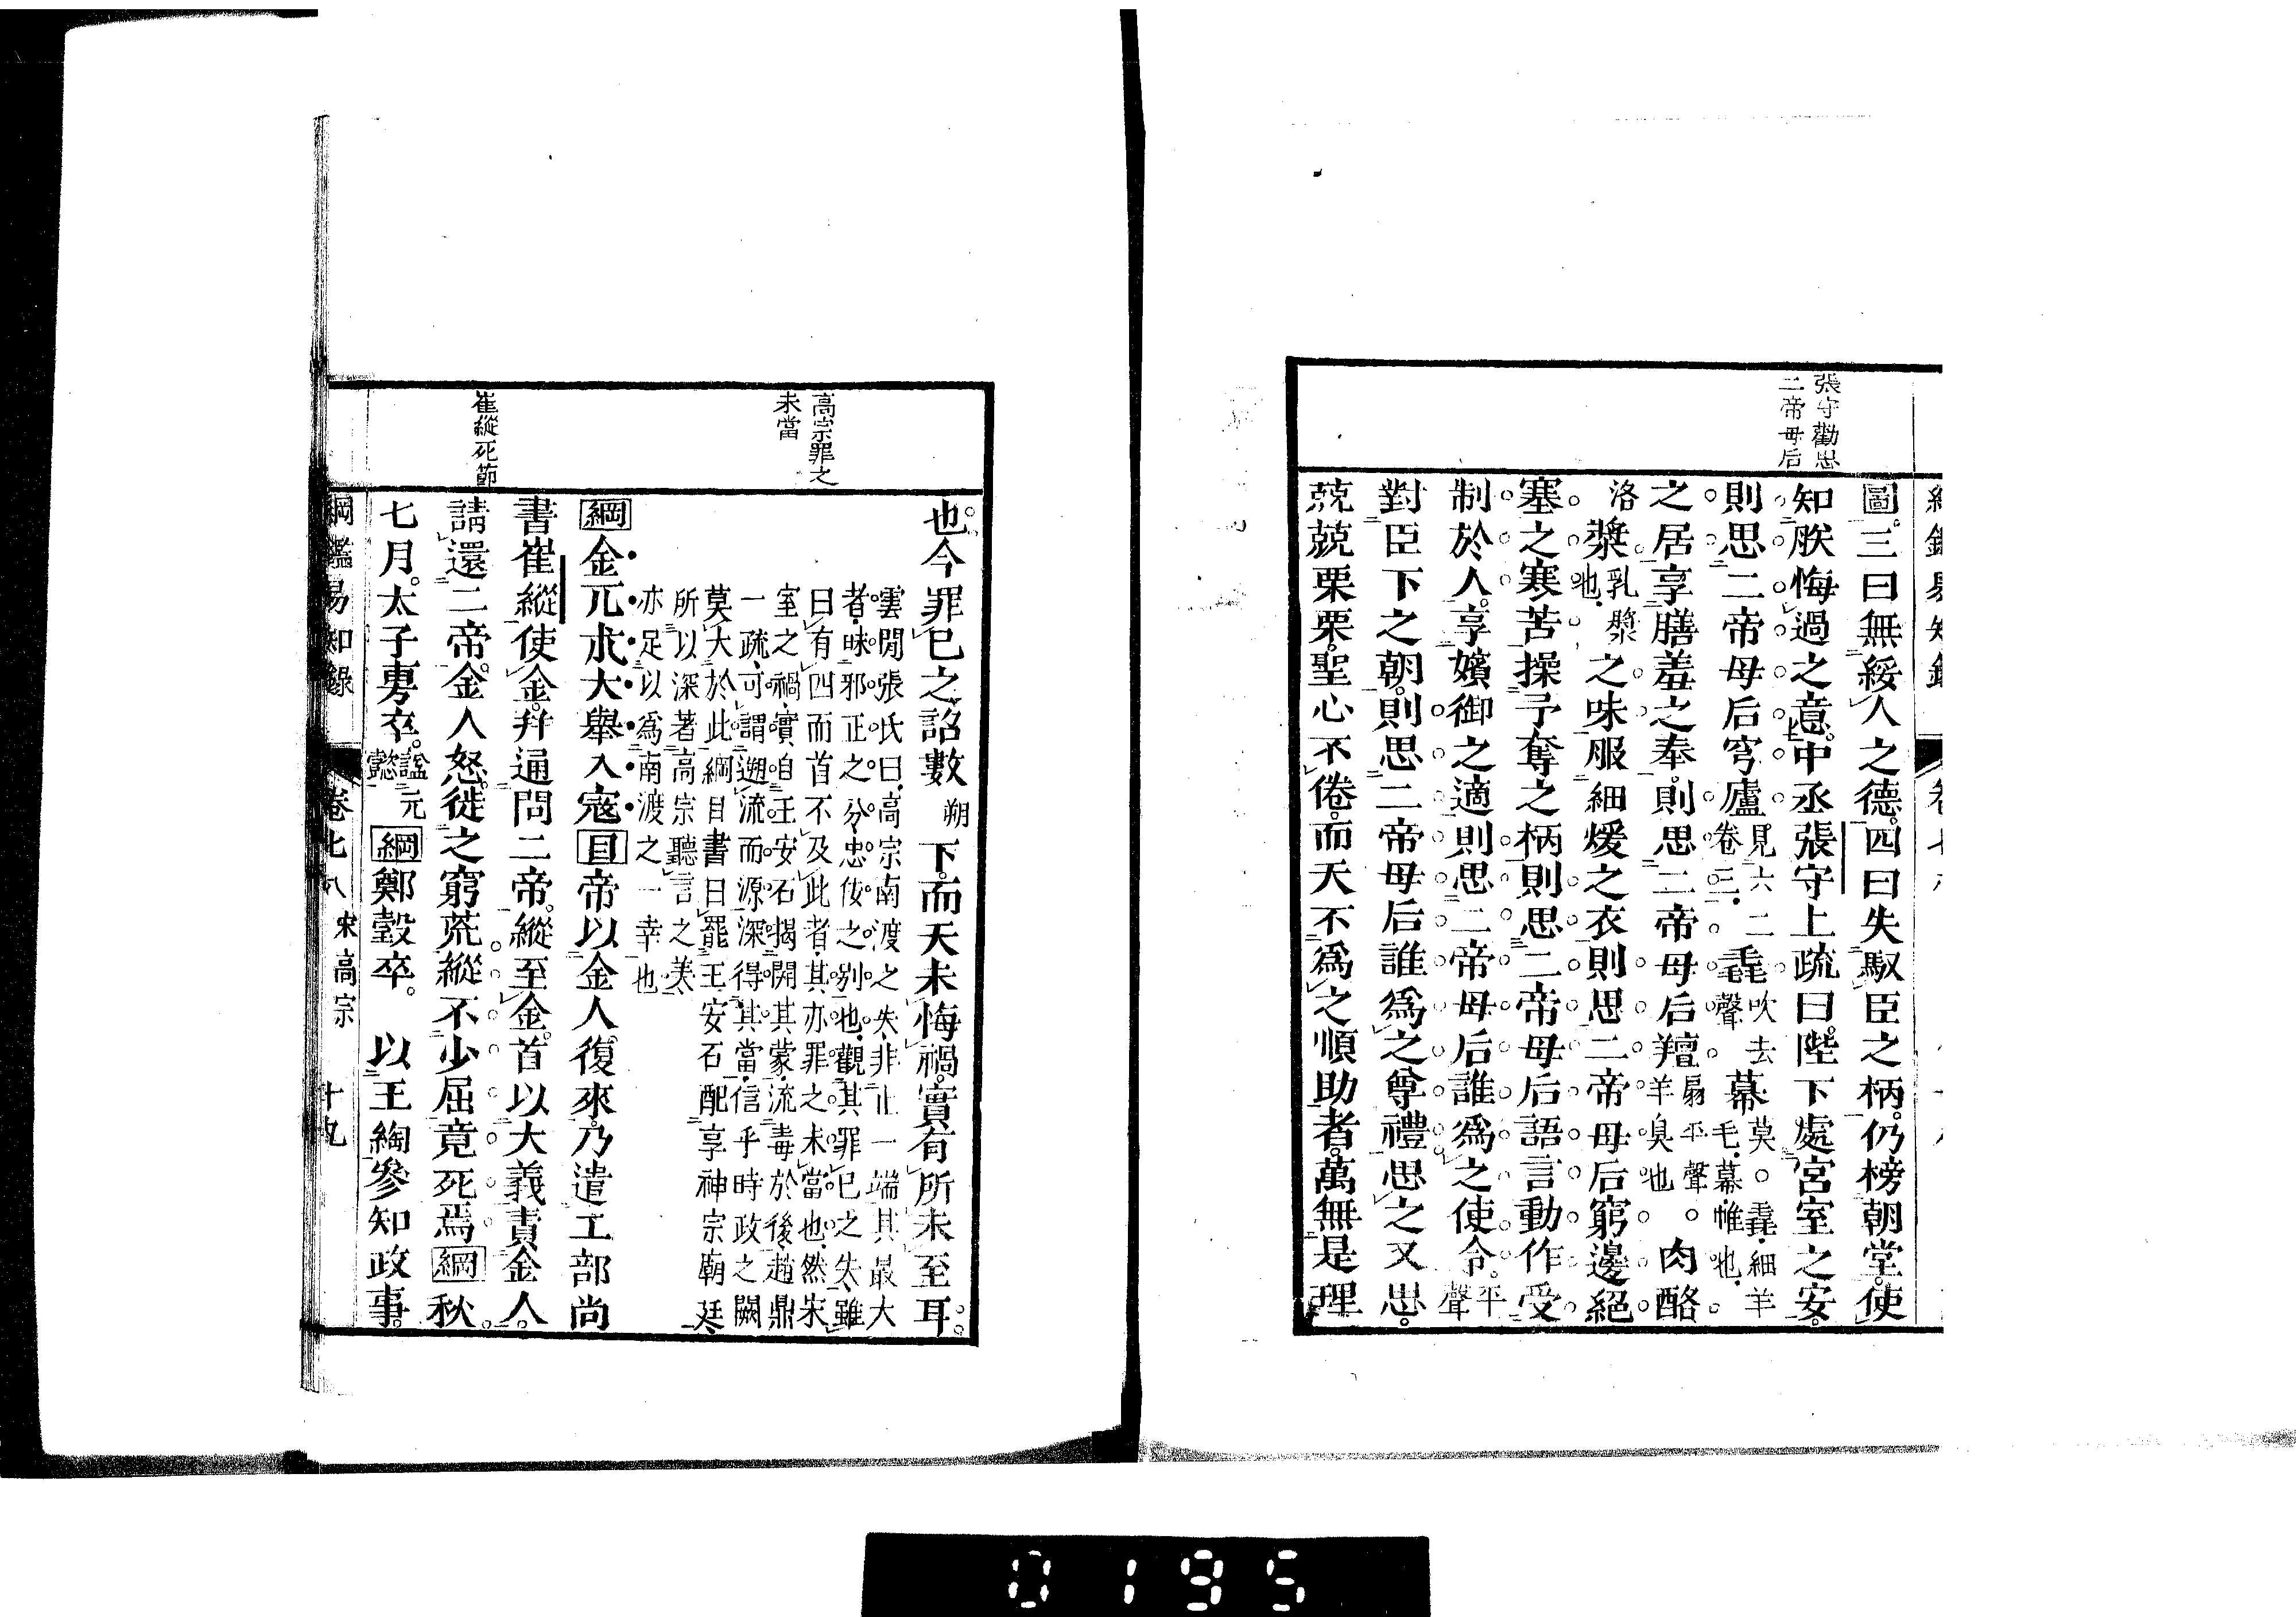 張守勸思
二帝母后
圖三曰無綏人之德四曰失馭臣之柄仍榜朝堂使
知朕悔過之意中丞張守上疏曰陛下處宮室之安
則思二帝母后穹廬見六二卷三毳吹去聲幕莫○毳細羊毛幕帷也
之居享膳羞之奉則思二帝母后羶扇平聲○羊臭也肉酪
洛漿乳漿也之味服細煖之衣則思二帝母后窮邊絕
塞之寒苦操予奪之柄則思二帝母后語言動作受
制於人享嬪御之適則思二帝母后誰爲之使令平聲
對臣下之朝則思二帝母后誰爲之尊禮思之又思
兢兢栗栗聖心不倦而天不爲之順助者萬無是理
高宗罪之
未當
崔縱死節
也今罪已之詔數朔下而天未悔禍實有所未至耳
雲閒張氏曰高宗南渡之失非止一端其最大
者昧邪正之分忠佞之別也觀其罪已之失雖
曰有四而首不及此者其亦罪之未當也然宋
室之禍實自王安石揭開其蒙流毒於後趙鼎
一疏可謂遡流而源深得其當信乎時政之闕
莫大於此綱目書曰罷王安石配享神宗廟廷
所以深著高宗聽言之美
亦足以爲南渡之一幸也
綱金兀朮大舉入寇目帝以金人復來乃遣工部尚
書崔縱使金并通問二帝縱至金首以大義責金人
請還二帝金人怒徙之窮荒縱不少屈竟死焉綱秋
七月太子旉卒謚元懿綱鄭瑴卒 以王綯參知政事
綱鑑易知錄 卷七八 宋高宗 十九
0195